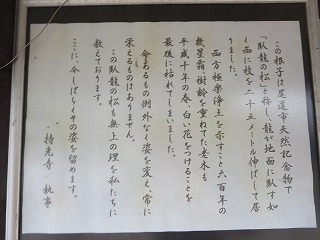 この根子は尾道市天然記念物で
「臥龍の松」と称し、龍が地面に臥す如
く西に枝を二十五メートル伸ばして居
りました。
西方極楽浄土を示すこと六百年の
幾星霜、樹齢を重ねてた老木も
平成十年の春、白い花をつけることを
最後に枯れてしまいました。
命あるもの例外なく姿を変え、常に
栄えるものはありません。
この臥龍の松も無上の理を私たちに
教えております。
ここに、今しばらくその姿を留めます。
・持光寺・執事